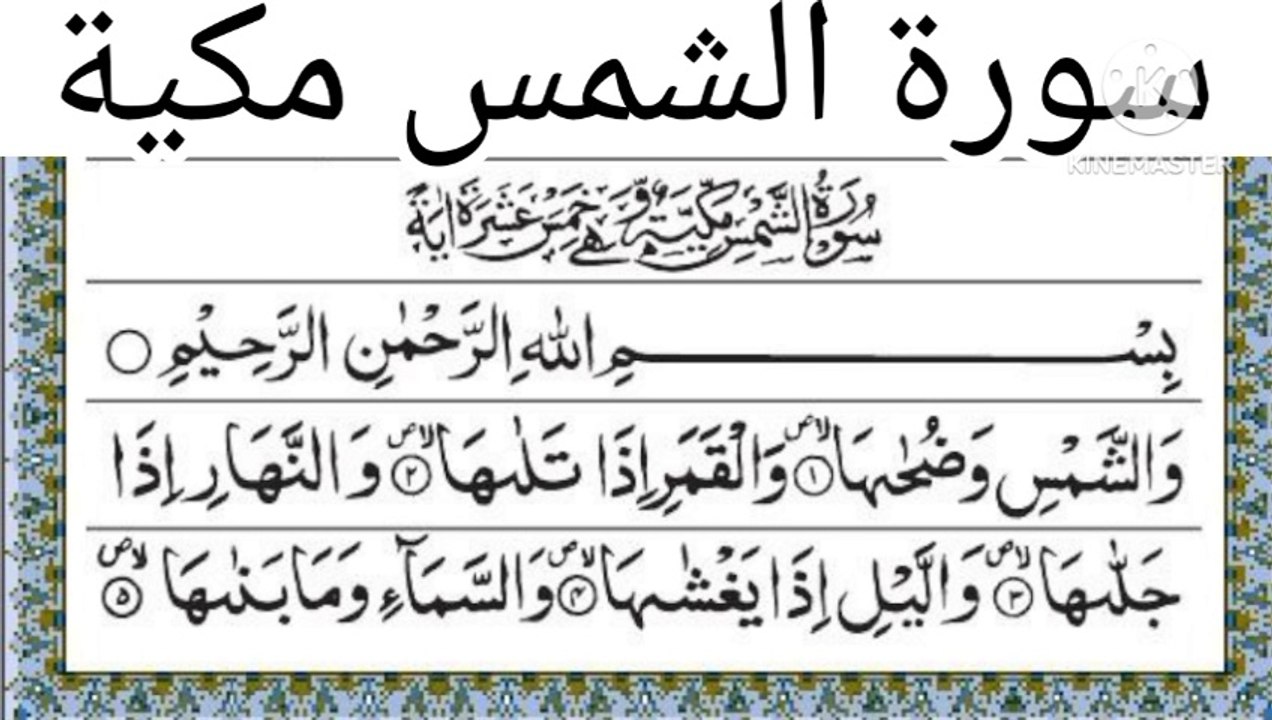 سورة الشمس مكية
KINEMASTER
سُورَةُ الشَّمْسِ مَكِّيَّةٌ وَّهِيَ خَمْسَ عَشَرَةَ اٰيَةً
بِسْمِ اللهِ الرَّحْمٰنِ الرَّحِيْمِ
وَالشَّمْسِ وَضُحٰىهَا ۙ ص ﴿۱﴾ وَالْقَمَرِ اِذَا تَلٰىهَا ۙ ص ﴿۲﴾ وَالنَّهَارِ اِذَا
جَلّٰىهَا ۙ ص ﴿۳﴾ وَالَّيْلِ اِذَا يَغْشٰىهَا ۙ ص ﴿۴﴾ وَالسَّمَآءِ وَمَا بَنٰىهَا ۙ ص ﴿۵﴾